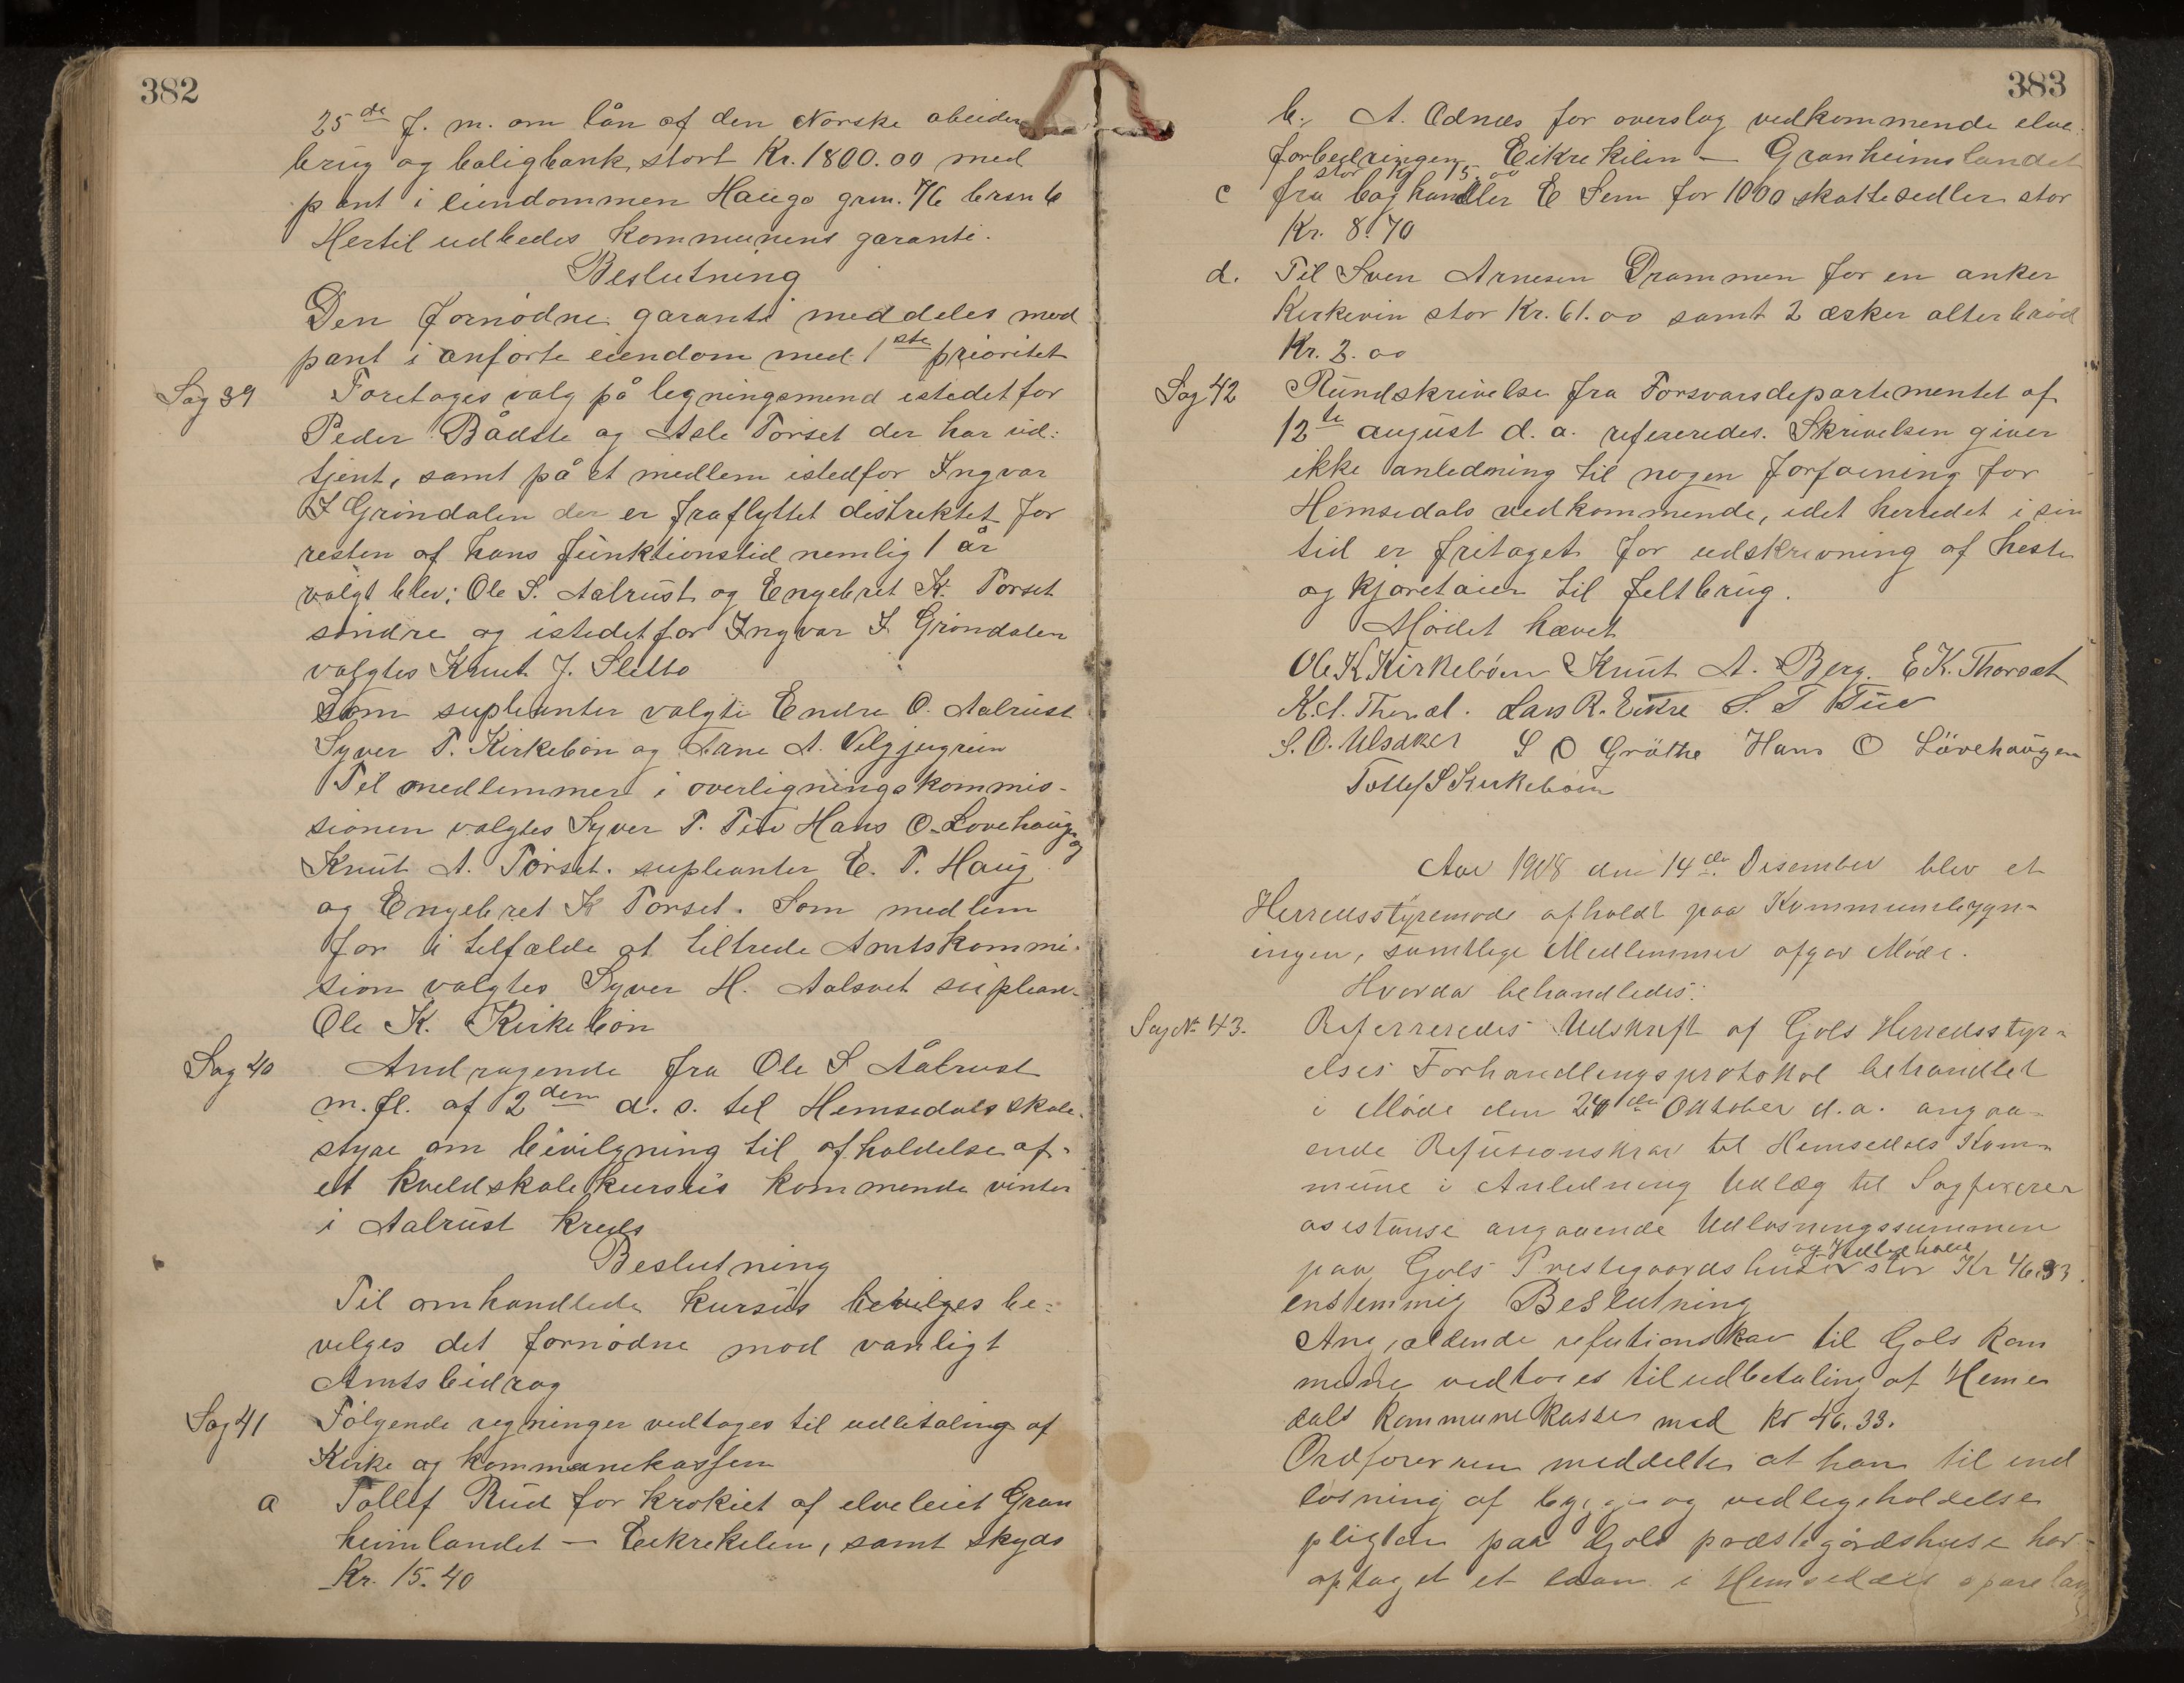 382
25de f. m. om lån af den Norske abeider
brug og boligbank stort Kr. 1800.00 med
pant i eiendommen Hauga grn. 76 brsn 6
Hertil udbedes kommunens garanti.
Beslutning
Den fornødne garanti meddeles mod
pant i anførte eiendom med 1ste prioritet
Sag 39 Foretages valg på legningsmend istedetfor
Peder Bådste og Asle Torset der har ud:
tjent, samt på et medlem istedfor Ingvar
I Grøndalen der er fraflyttet distriktet for
resten af hans funktionstid nemlig 1 år
valgt blev: Ole S. Aalrust og Engebret K. Torset
søndre og istedetfor Ingvar I Grøndalen
valgtes Knut J. Sletto
Som supleanter valgte Endre O. Aalrust
Syver T. Kirkebøn og Arne A.
Til medlemmer i overligningskommis-
sionen valgtes Syver T. Tuv Hans O. Løvehaug og
Knut A. Torset. supleanter E. T. Haug
og Engebret K Torset. Som medlem
for i tilfælde at tiltrede Amtskommi-
sion valgtes Syver H. Aalsvet suplean-
Ole K. Kirkebøn
Sag 40 Andragende fra Ole S Aålrust
m. fl. af 2den d. s. til Hemsedals skole-
styre om bevilgning til afholdelse af-
et kveldskolekursus kommende vinter
i Aalrust kreds
Beslutning
Til omhandlede kursus bevilges be-
velges det fornødne mod vanligt
Amtsbidrag
Sag 41 Følgende regninger vedtages til udbitaling af
Kirke og kommunekassen
a Tollef Rud for krokiet af elveleiet Gran
heimlandet — Eikrekilen, samt skyds
Kr. 15.40
383
b. A. Ødnæs for overslag vedkommende elve
forbedringen Eikrekilen — Granheimslandet
stor Kr 15.00
c fra boghandler E Sem for 1000 skattesedler stor
Kr. 8.70
d. Til Sven Arnesen Drammen for en anker
Kirkevin stor Kr. 61.00 samt 2 æsker alterbrød
Kr. 2.00
Sag 42 Rundskrivelse fra Forsvarsdepartementet af
12te august d. a. refereredes. Skrivelsen giver
ikke anledning til nogen forføining for
Hemsedals vedkommende, idet herredet i sin
tid er fritaget for udskrivning af heste
og kjøretøier til feltbrug.
Mødet hævet
Ole K Kirkebøen Knut A. Berg. E K. Thorset
K. A. Thorset. Lars R. Eikre S. T Tuv
S. O. Ulsaker S O Grøthe Hans O Løvehaugen
Tollef S Kirkebøen
Aar 1908 den 14de Desember blev et
Herredsstyremøde afholdt paa Kommunebygn-
ingen, samtlige Medlemmer afgav Møde.
Hvorda behandledes:
Sag No 43. Referreredes Udskrift af Gols Herredsstyr-
elses Forhandlingsprotokol behandlet
i Møde den 24de Oktober d. a. angaa-
ende Refusionskrav til Hemsedals Kom-
mune i Anledning Udlæg til Sagførerer
asistanse angaaende Udløsningssummen
paa Gols Prestegaardshuse stor Kr 46.33.
enstemmig Beslutning
Angjældende refutionskav til Gols kom
mune vedtoges til udbetaling af Hemse
dals kommunekasse med kr 46.33.
Ordføreren meddelte at han til ind
løsning af bygge og vedligeholdelse
pligten paa Gols prestegårdshuse har
optaget et laan i Hemsedals sparebank